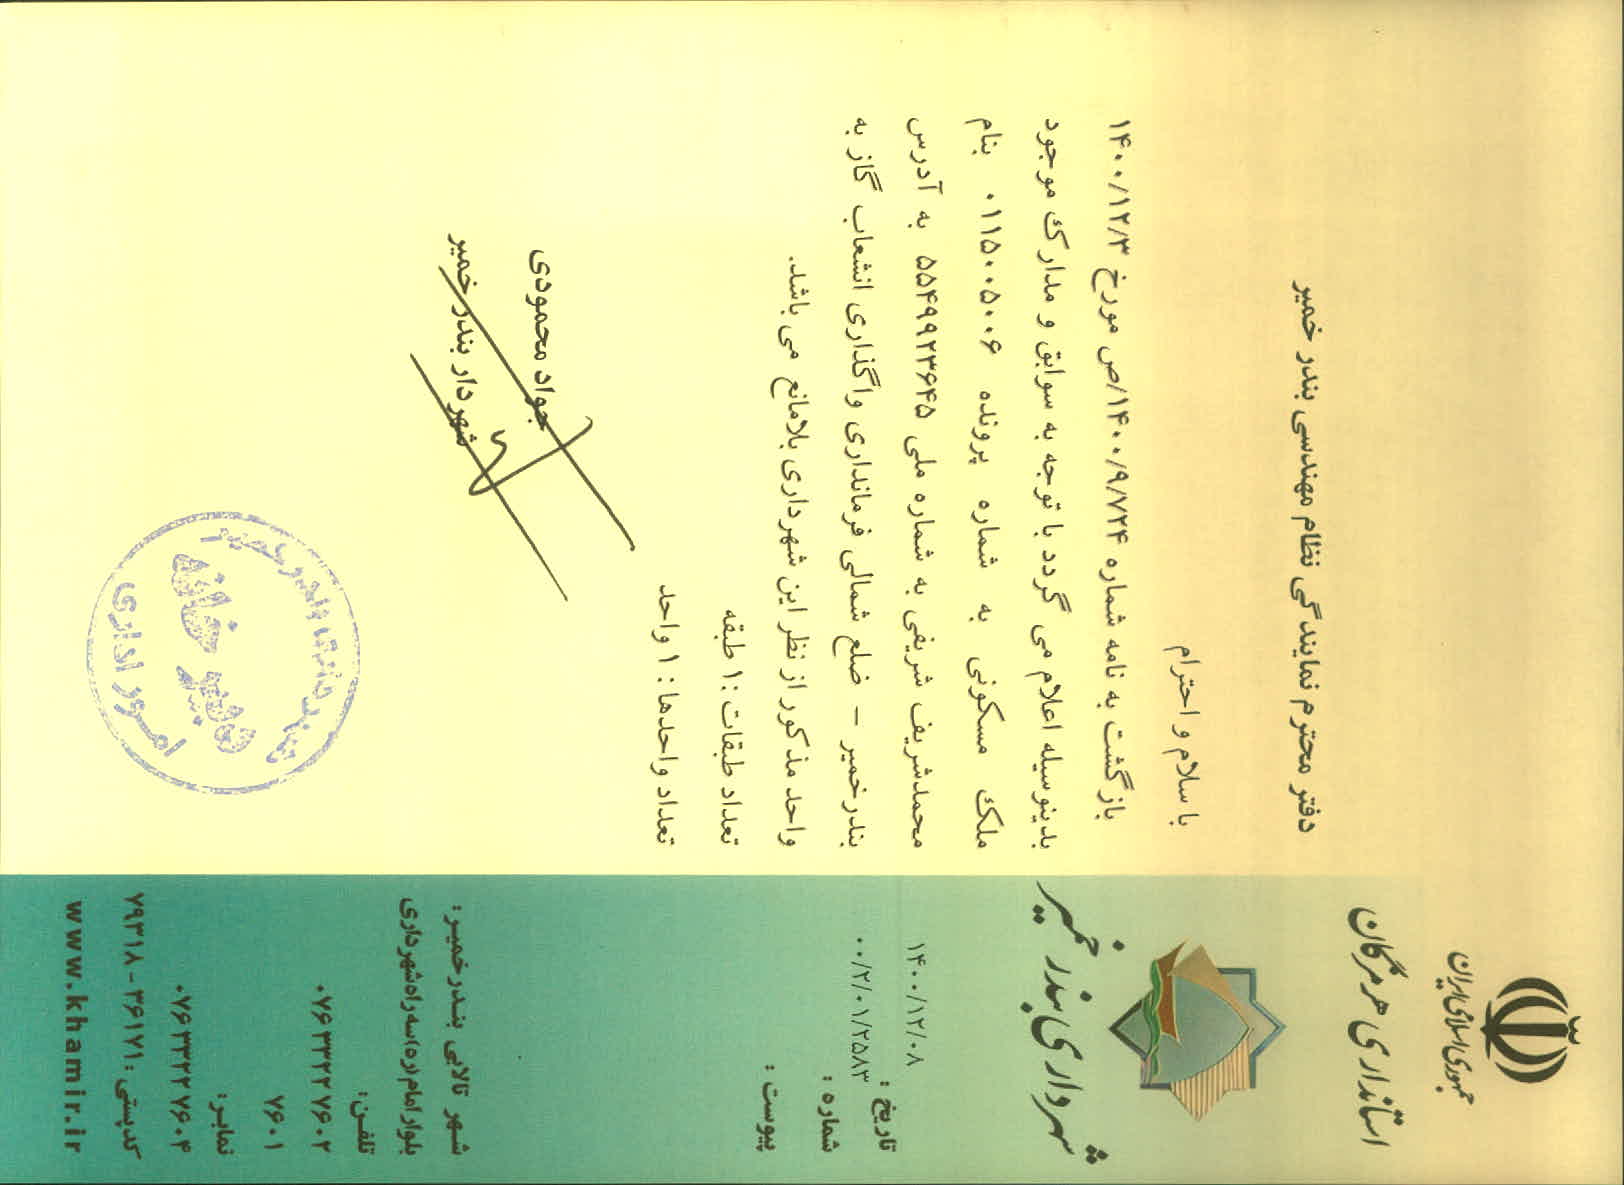 جمهوری اسلامی ایران
استانداری هرمزگان
شهرداری بندر خمیر
تاریخ : ۱۴۰۰/۱۲/۰۸
شماره : ۰۰/۲/۰۱/۲۵۸۳
پیوست :
دفتر محترم نمایندگی نظام مهندسی بندر خمیر
با سلام و احترام
بازگشت به نامه شماره ۱۴۰۰/۹/۷۲۴/ص مورخ ۱۴۰۰/۱۲/۳
بدینوسیله اعلام می گردد با توجه به سوابق و مدارک موجود
ملک مسکونی به شماره پرونده ۰۱۱۵۰۰۵۰۰۶ بنام
محمدشریف شریفی به شماره ملی ۵۵۴۹۹۲۳۶۴۵ به آدرس
بندرخمیر – ضلع شمالی فرمانداری واگذاری انشعاب گاز به
واحد مذکور از نظر این شهرداری بلامانع می باشد.
تعداد طبقات :۱ طبقه
تعداد واحدها : ۱ واحد
جواد محمودی
شهردار بندر خمیر
شهرداری بندر خمیر
دبیر خانه
امور اداری
شهر تالابی بندرخمیر :
بلوار امام (ره) سه راه شهرداری
تلفن:
۰۷۶۳۳۲۲۷۶۰۲
۷۶۰۱
نمابر:
۰۷۶۳۳۲۲۷۶۰۴
کدپستی : ۳۶۱۷۱ - ۷۹۳۱۸
www.khamir.ir